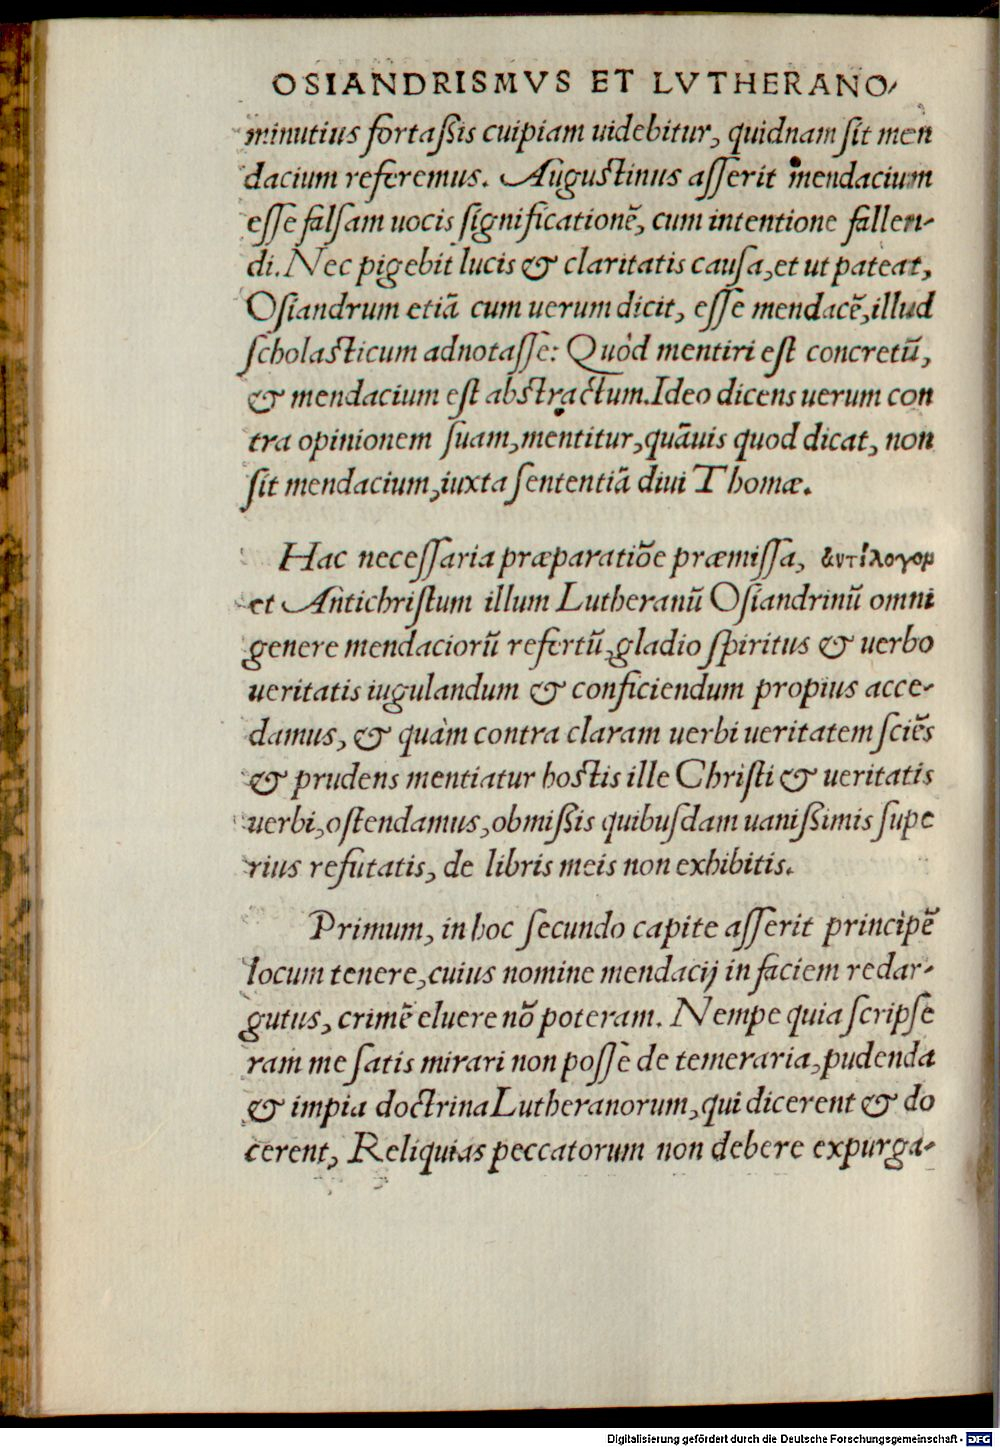 OSIANDRISMVS ET LVTHERANO-
minutius fortaßis cuipiam uidebitur, quidnam sit men
dacium referemus. Augustinus asserit mendacium
esse falsam uocis significationē, cum intentione fallen-
di. Nec pigebit lucis & claritatis causa, et ut pateat,
Osiandrum etiā cum uerum dicit, esse mendacē, illud
scholasticum adnotasse: Quòd mentiri est concretū,
& mendacium est abstractum. Ideo dicens uerum con
tra opinionem suam, mentitur, quāuis quod dicat, non
sit mendacium, iuxta sententiā diui Thomæ.
Hac necessaria præparatiōe præmissa, ἀντίλογον
et Antichristum illum Lutheranū Osiandrinū omni
genere mendaciorū refertū, gladio spiritus & uerbo
ueritatis iugulandum & conficiendum propius acce-
damus, & quàm contra claram uerbi ueritatem sciēs
& prudens mentiatur hostis ille Christi & ueritatis
uerbi, ostendamus, obmißis quibusdam uanißimis supe
rius refutatis, de libris meis non exhibitis.
Primum, in hoc secundo capite asserit principē
locum tenere, cuius nomine mendacij in faciem redar-
gutus, crimē eluere nō poteram. Nempe quia scripse
ram me satis mirari non posse de temeraria, pudenda
& impia doctrina Lutheranorum, qui dicerent & do
cerent, Reliquias peccatorum non debere expurga-
Digitalisierung gefördert durch die Deutsche Forschungsgemeinschaft - DFG